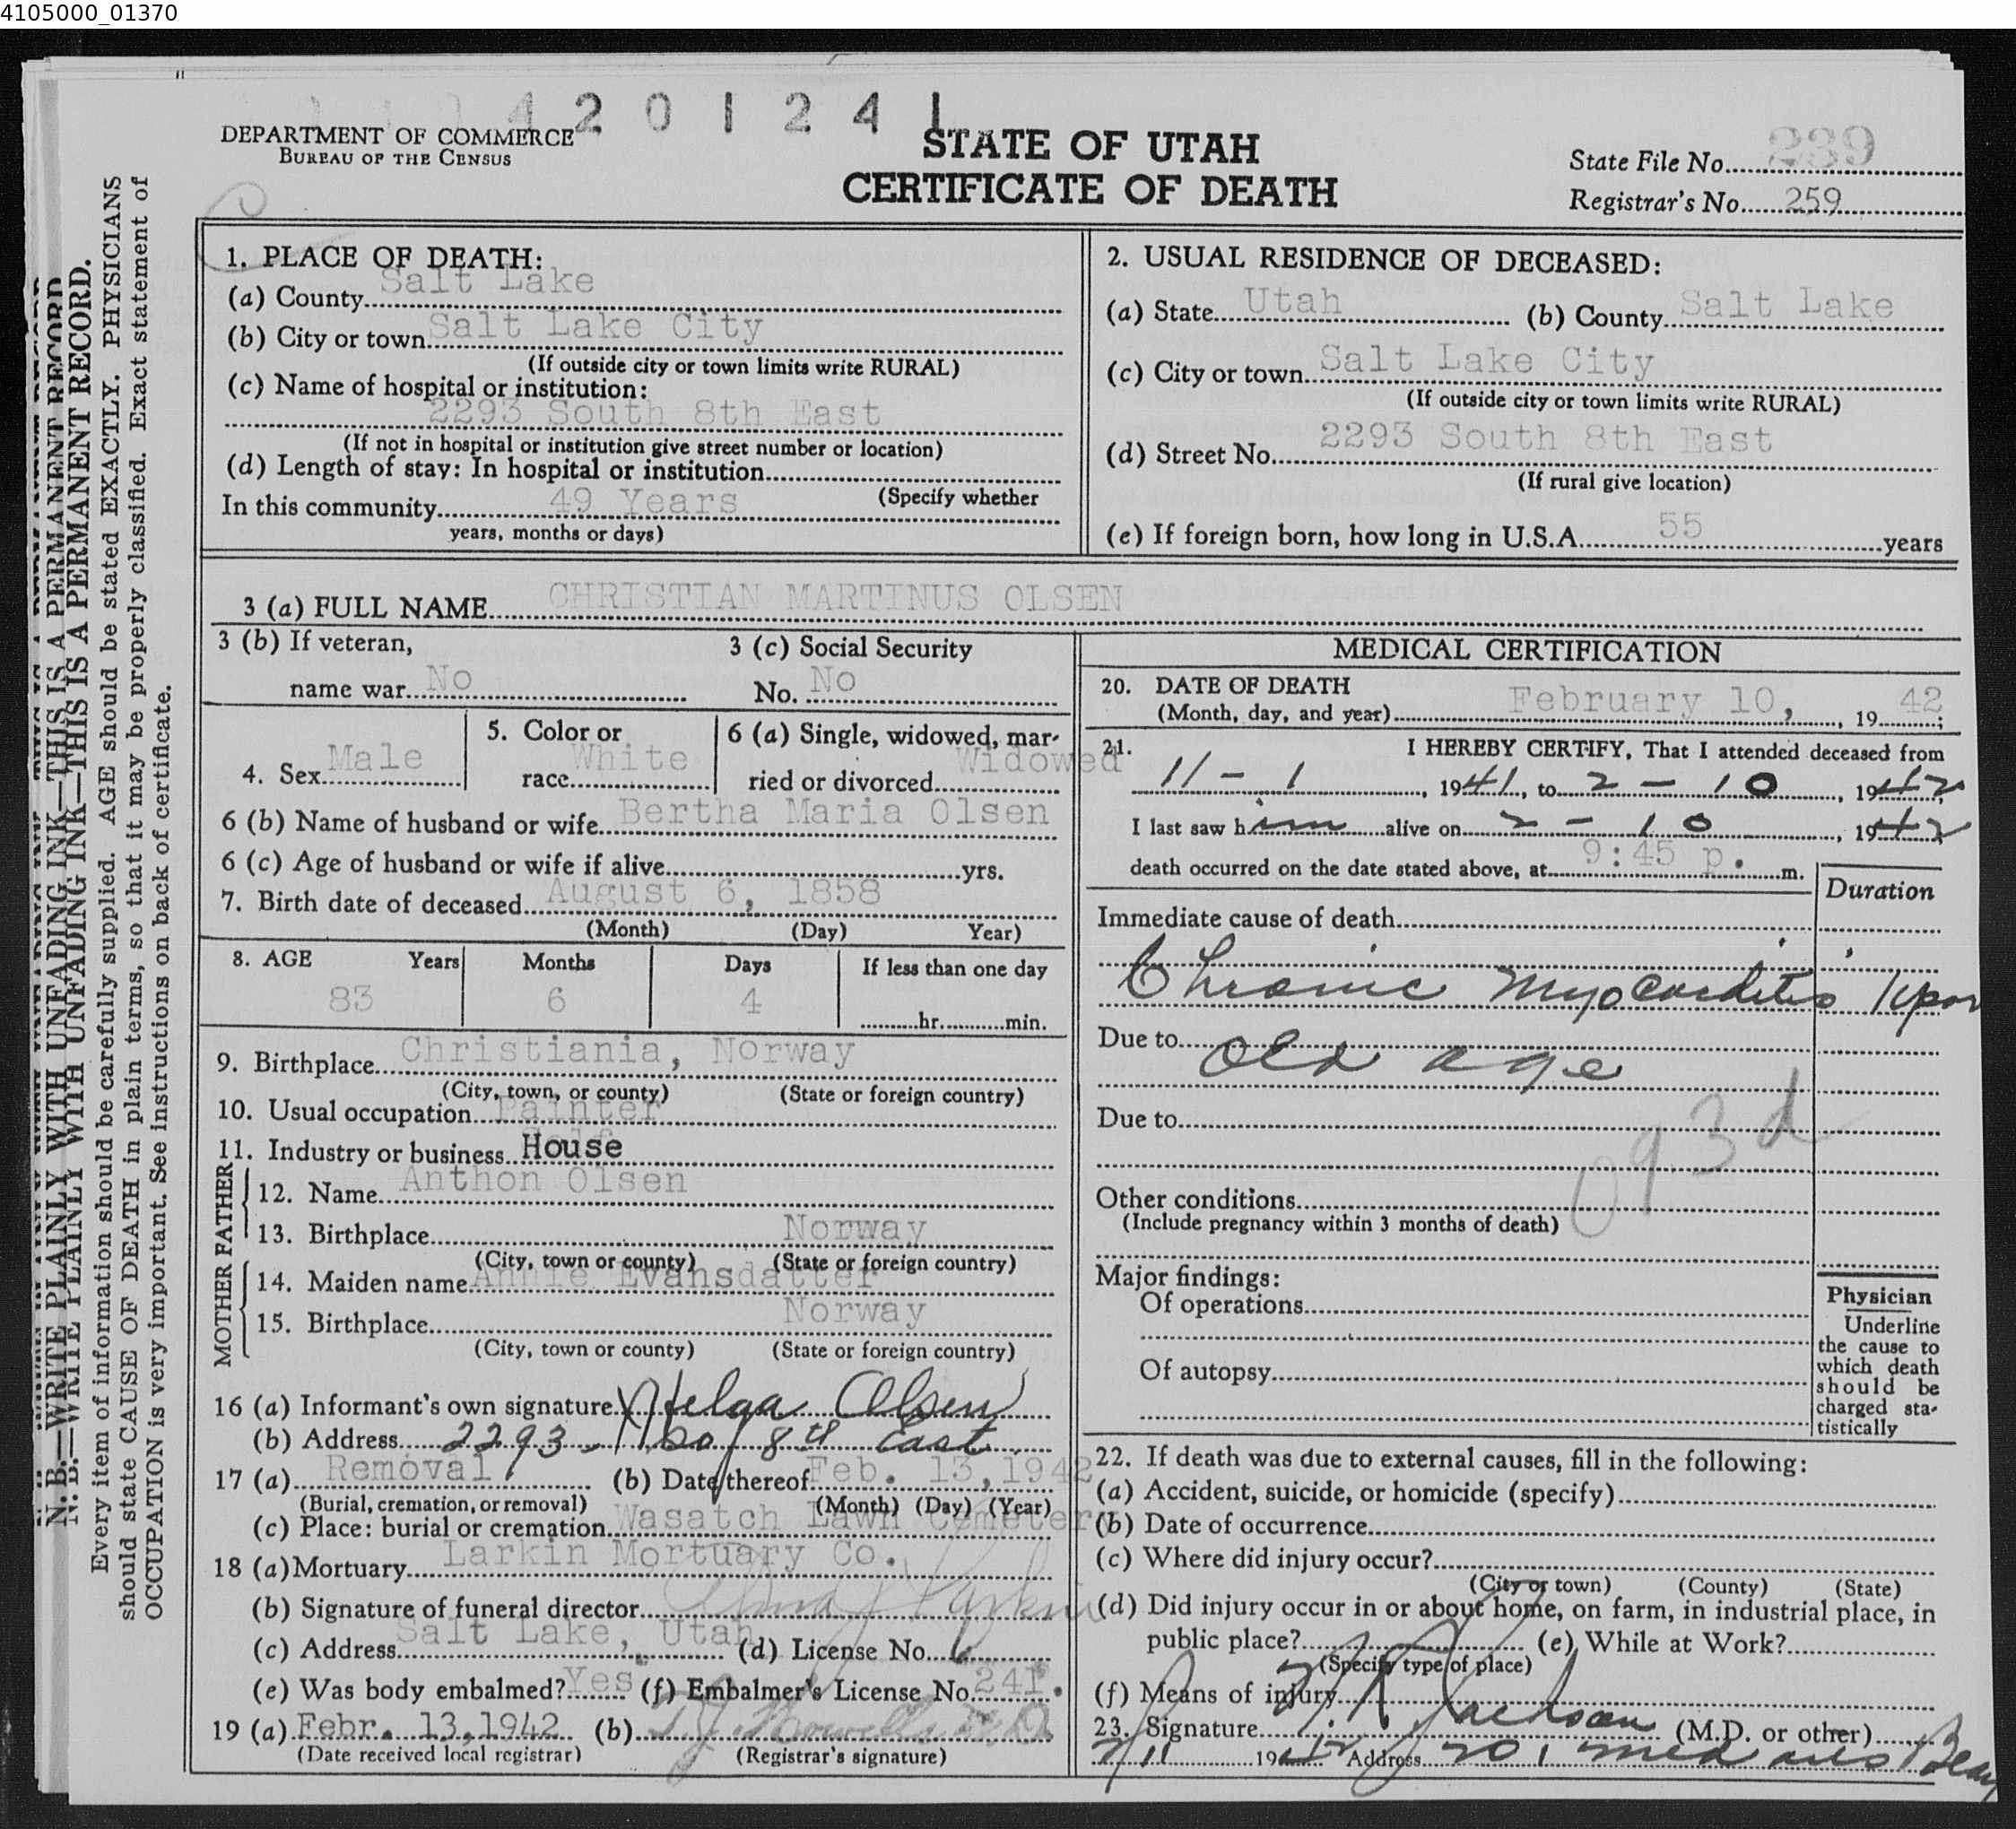 4105000_01370
4 2 0 1 2 4 1
DEPARTMENT OF COMMERCE
BUREAU OF THE CENSUS
STATE OF UTAH
CERTIFICATE OF DEATH
State File No. 239
Registrar's No. 259
N. B.—WRITE PLAINLY WITH UNFADING INK—THIS IS A PERMANENT RECORD
N. B.—WRITE PLAINLY WITH UNFADING INK—THIS IS A PERMANENT RECORD.
Every item of information should be carefully supplied. AGE should be stated EXACTLY. PHYSICIANS
should state CAUSE OF DEATH in plain terms, so that it may be properly classified. Exact statement of
OCCUPATION is very important. See instructions on back of certificate.
1. PLACE OF DEATH:
(a) County Salt Lake
(b) City or town Salt Lake City
(If outside city or town limits write RURAL)
(c) Name of hospital or institution:
2293 South 8th East
(If not in hospital or institution give street number or location)
(d) Length of stay: In hospital or institution
(Specify whether
In this community 49 Years
years, months or days)
2. USUAL RESIDENCE OF DECEASED:
(a) State Utah (b) County Salt Lake
(c) City or town Salt Lake City
(If outside city or town limits write RURAL)
(d) Street No. 2293 South 8th East
(If rural give location)
(e) If foreign born, how long in U.S.A. 55 years
3 (a) FULL NAME CHRISTIAN MARTINUS OLSEN
3 (b) If veteran,
name war No
3 (c) Social Security
No. No
4. Sex Male
5. Color or
race White
6 (a) Single, widowed, mar-
ried or divorced Widowed
6 (b) Name of husband or wife Bertha Maria Olsen
6 (c) Age of husband or wife if alive yrs.
7. Birth date of deceased August 6, 1858
(Month) (Day) Year)
8. AGE Years Months Days If less than one day
83 6 4 hr. min.
9. Birthplace Christiania, Norway
(City, town, or county) (State or foreign country)
10. Usual occupation Painter
11. Industry or business House
FATHER
12. Name Anthon Olsen
13. Birthplace Norway
(City, town or county) (State or foreign country)
MOTHER
14. Maiden name Annie Evansdatter
15. Birthplace Norway
(City, town or county) (State or foreign country)
16 (a) Informant's own signature Helga Olsen
(b) Address 2293 So 8th East
17 (a) Removal (b) Date thereof Feb. 13, 1942
(Burial, cremation, or removal) (Month) (Day) (Year)
(c) Place: burial or cremation Wasatch Lawn Cemetery
18 (a) Mortuary Larkin Mortuary Co.
(b) Signature of funeral director Larkin
(c) Address Salt Lake, Utah (d) License No. 6
(e) Was body embalmed? Yes (f) Embalmer's License No. 241.
19 (a) Febr. 13, 1942 (b) M.D.
(Date received local registrar) (Registrar's signature)
MEDICAL CERTIFICATION
20. DATE OF DEATH
(Month, day, and year) February 10, 1942;
21. I HEREBY CERTIFY, That I attended deceased from
11 - 1, 1941, to 2 - 10, 1942;
I last saw him alive on 2 - 10, 1942
death occurred on the date stated above, at 9:45 p. m.
Duration
Immediate cause of death
Chronic Myocarditis
Due to old age
Due to
093d
Other conditions
(Include pregnancy within 3 months of death)
Major findings:
Of operations
Of autopsy
Physician
Underline
the cause to
which death
should be
charged sta-
tistically
22. If death was due to external causes, fill in the following:
(a) Accident, suicide, or homicide (specify)
(b) Date of occurrence
(c) Where did injury occur?
(City or town) (County) (State)
(d) Did injury occur in or about home, on farm, in industrial place, in
public place? (e) While at Work?
(Specify type of place)
(f) Means of injury
23. Signature Jackson (M.D. or other)
2/11 1942 Address 201 Med arts